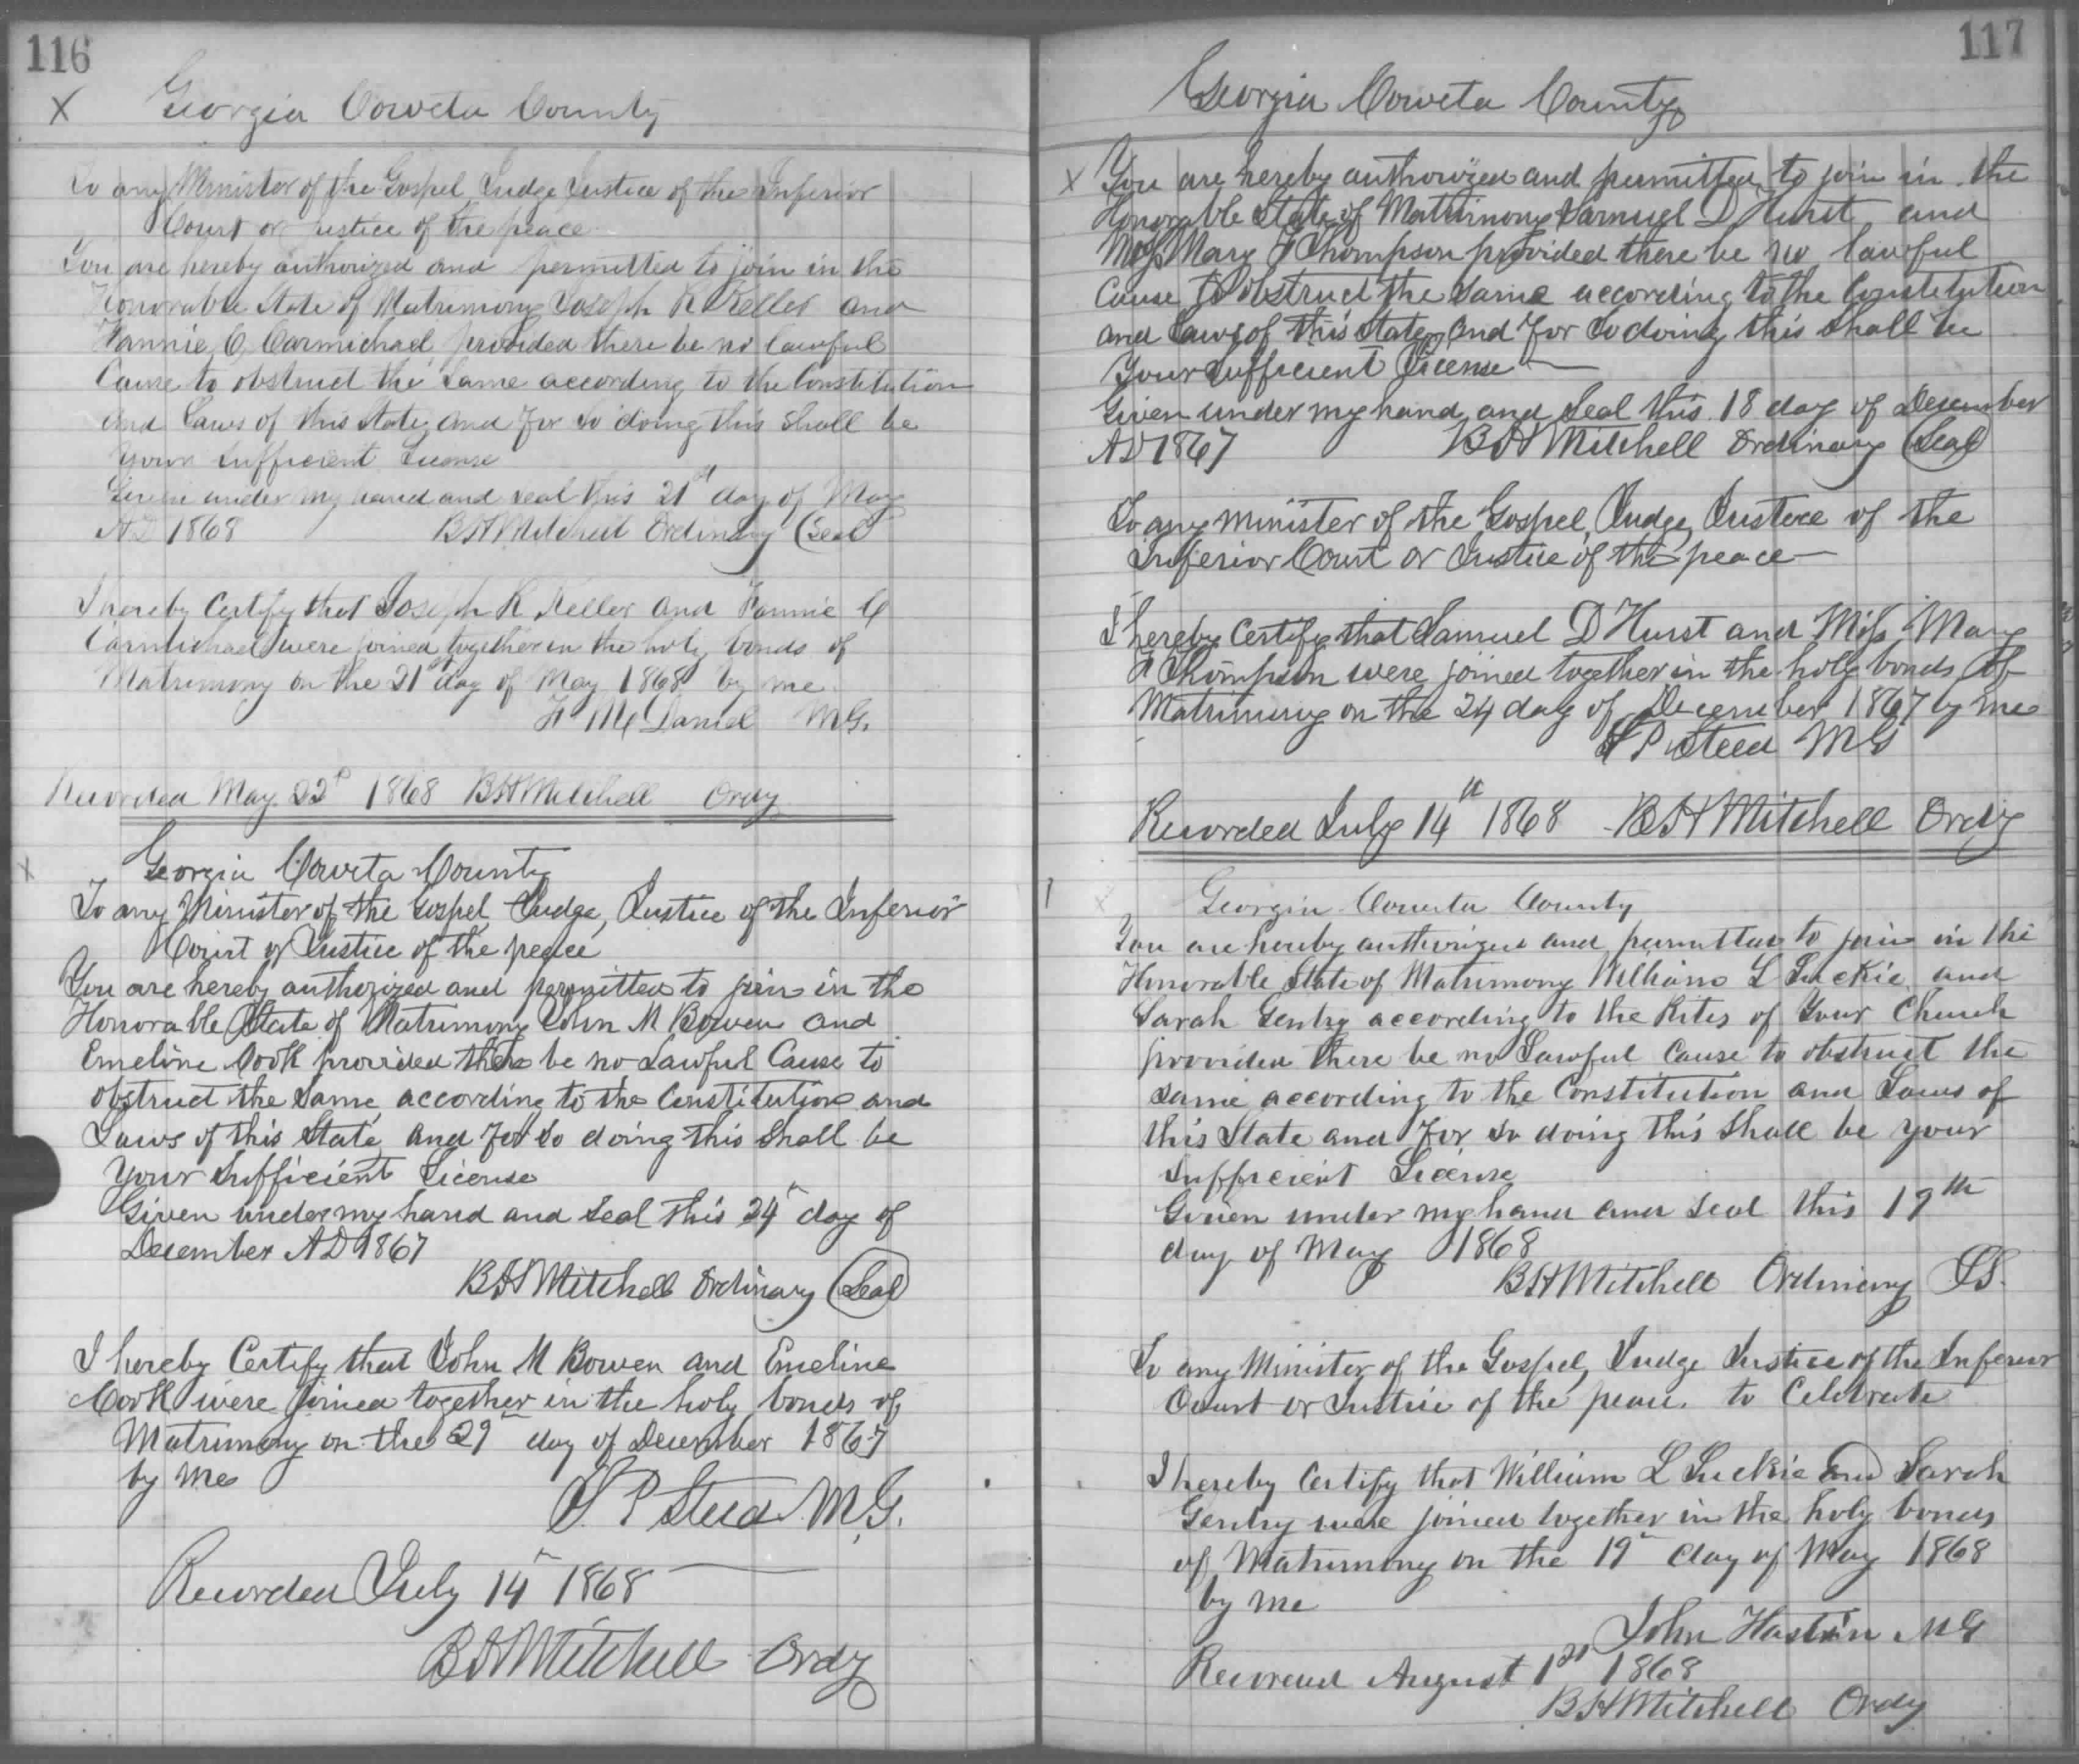 116
X Georgia Coweta County
To any Minister of the Gospel Judge Justice of the Inferior
Court or Justice of the peace
You are hereby authorized and permitted to join in the
Honorable State of Matrimony Joseph R Keller and
Fannie C Carmichael provided there be no lawful
Cause to obstruct the Same according to the Constitution
and Laws of this State, and for so doing this Shall be
Your Sufficient License
Given under my hand and seal this 21st day of May
AD 1868 BH Mitchell Ordinary (Seal)
I hereby Certify that Joseph R Keller and Fannie C
Carmichael were joined together in the holy bonds of
Matrimony on the 21st day of May 1868 by me
McDaniel MG.
Recorded May 22d 1868 BH Mitchell Ordy
X Georgia Coweta County
To any Minister of the Gospel, Judge, Justice of the Inferior
Court or Justice of the peace
You are hereby authorized and permitted to join in the
Honorable State of Matrimony John M Bowen and
Emeline Cook provided there be no Lawful Cause to
obstruct the Same according to the Constitution and
Laws of this State, and for So doing this Shall be
Your Sufficient License
Given under my hand and Seal this 24th day of
December AD 1867
BH Mitchell Ordinary (Seal)
I hereby Certify that John M Bowen and Emeline
Cook were joined together in the holy bonds of
Matrimony on the 29th day of December 1867
by me
S P Steed M.G.
Recorded July 14th 1868
BH Mitchell Ordy
117
Georgia Coweta County
X You are hereby authorized and permitted to join in the
Honorable State of Matrimony Samuel D Hurst and
Miss Mary F Thompson provided there be no lawful
Cause to obstruct the Same according to the Constitution
and Laws of this State, and for So doing this Shall be
Your Sufficient License
Given under my hand and Seal this 18 day of December
AD 1867 BH Mitchell Ordinary (Seal)
To any minister of the Gospel, Judge, Justice of the
Inferior Court or Justice of the peace
I hereby Certify that Samuel D Hurst and Miss Mary
F Thompson were joined together in the holy bonds of
Matrimony on the 24 day of December 1867 by me
S P Steed MG
Recorded July 14th 1868 BH Mitchell Ordy
X Georgia Coweta County
You are hereby authorized and permitted to join in the
Honorable State of Matrimony William L Luckie and
Sarah Gentry according to the Rites of Your Church
provided there be no Lawful Cause to obstruct the
Same according to the Constitution and Laws of
this State and for so doing this Shall be your
Sufficient License
Given under my hand and seal this 19th
day of May 1868
BH Mitchell Ordinary LS.
To any Minister of the Gospel, Judge Justice of the Inferior
Court or Justice of the peace. to Celebrate
I hereby Certify that William L Luckie and Sarah
Gentry were joined together in the holy bonds
of Matrimony on the 19th day of May 1868
by me
John MG
Recorded August 1st 1868
BH Mitchell Ordy